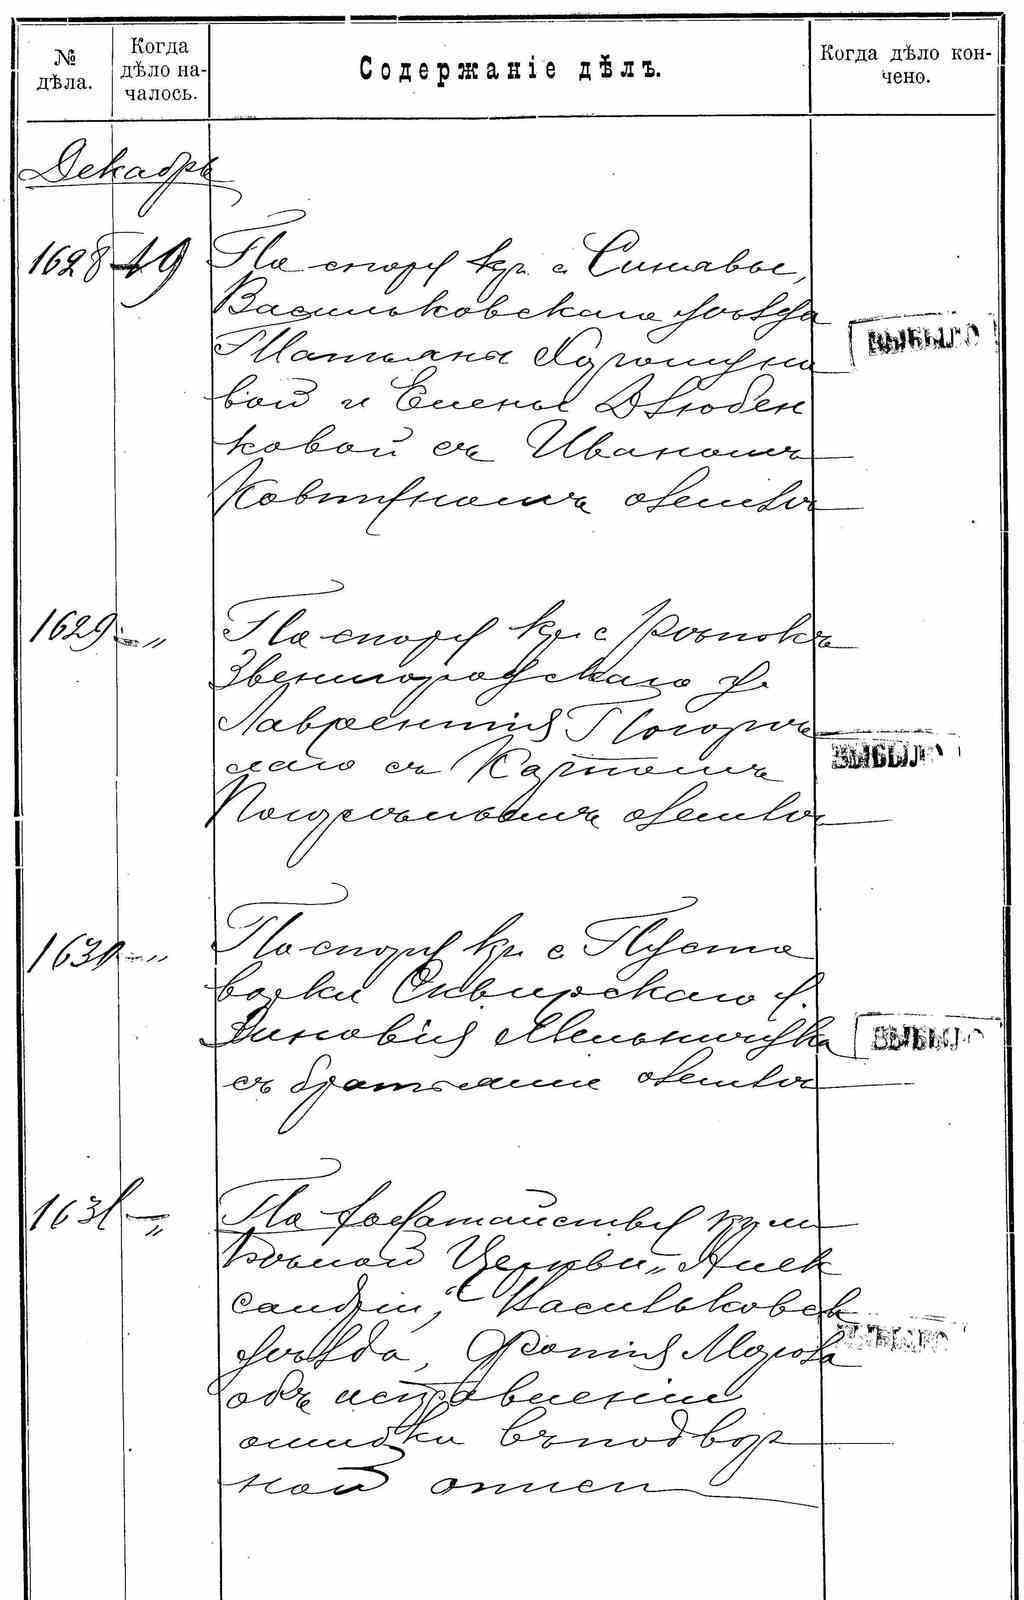 № дѣла.
Когда дѣло началось.
Содержаніе дѣлъ.
Когда дѣло кончено.
Декабрь
1628 19 По спору кр. с. Синявы,
Васильковскаго уѣзда
ВЫБЫЛО
Татьяны
вой и Елены Дзюбен
ковой съ Иваномъ
Ковтуномъ о землѣ
1629 — „ По спору кр. с.
Звенигородскаго у.
Лаврентія Погорѣ
ВЫБЫЛО
лаго съ Карпомъ
Погорѣлымъ о землѣ
1630 — „ По спору кр. с. Пусто
варки Сквирскаго у.
Зиновія Мельничука
ВЫБЫЛО
съ братьями о землѣ
1631 — „ По ходатайству
Церкви „Алек
сандріи," Васильковск
уѣзда, Фотія Мороза
ВЫБЫЛО
объ исправленіи
ошибки въ подвор
ной описи